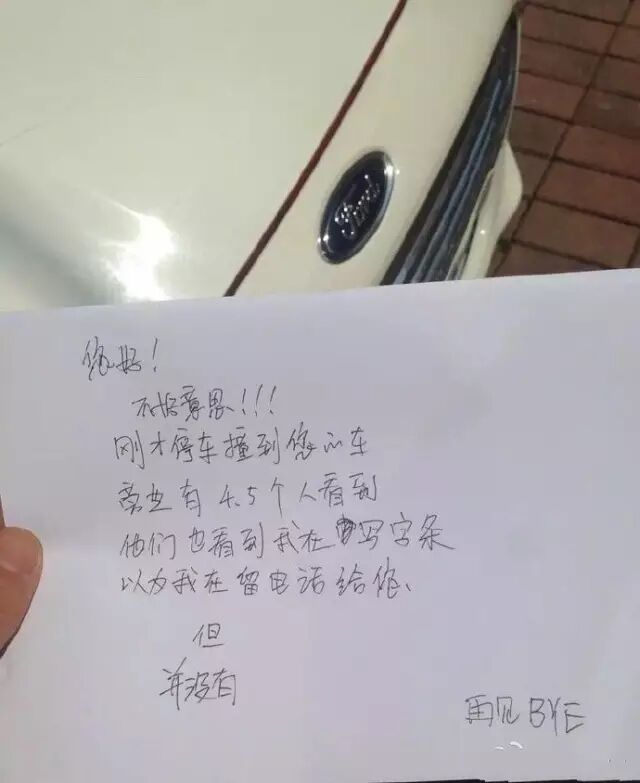 Ford
您好!
不好意思!!!
刚才停车撞到您的车
旁边有4.5个人看到
他们也看到我在写字条
以为我在留电话给你、
但
并没有
再见BYE